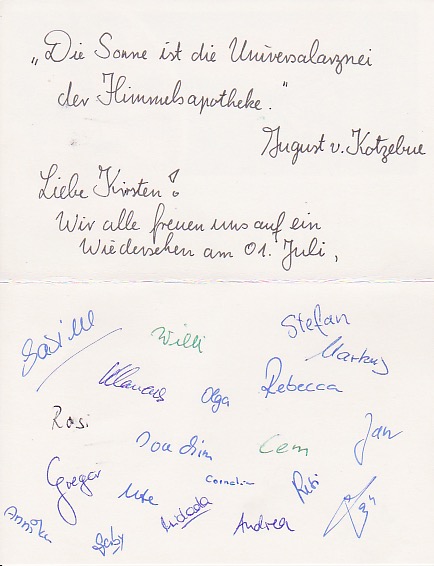 „Die Sonne ist die Universalarznei
der Himmelsapotheke."
August v. Kotzebue
Liebe Kirsten!
Wir alle freuen uns auf ein
Wiedersehen am 01. Juli,
Willi
Stefan
Markus
Olga
Rebecca
Rosi
Joachim
Cem
Jan
Gregor
Ute
Cornelia
Andrea
Gaby